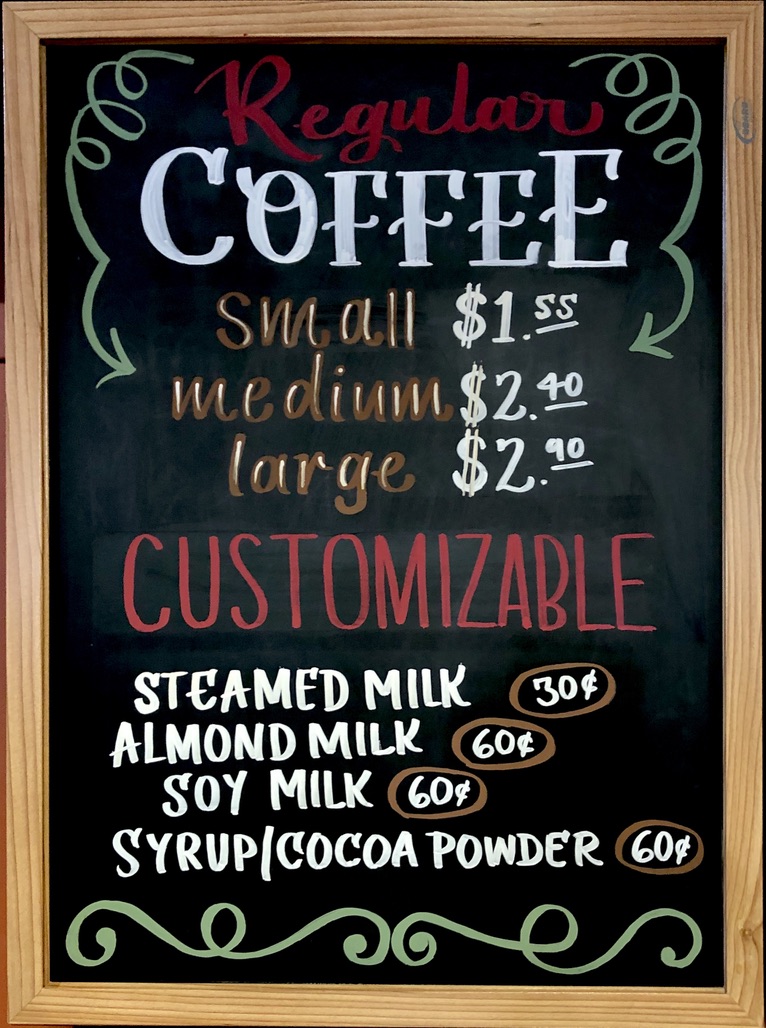 Regular
COFFEE
small $1.55
medium $2.40
large $2.90
CUSTOMIZABLE
STEAMED MILK 30¢
ALMOND MILK 60¢
SOY MILK 60¢
SYRUP/COCOA POWDER 60¢